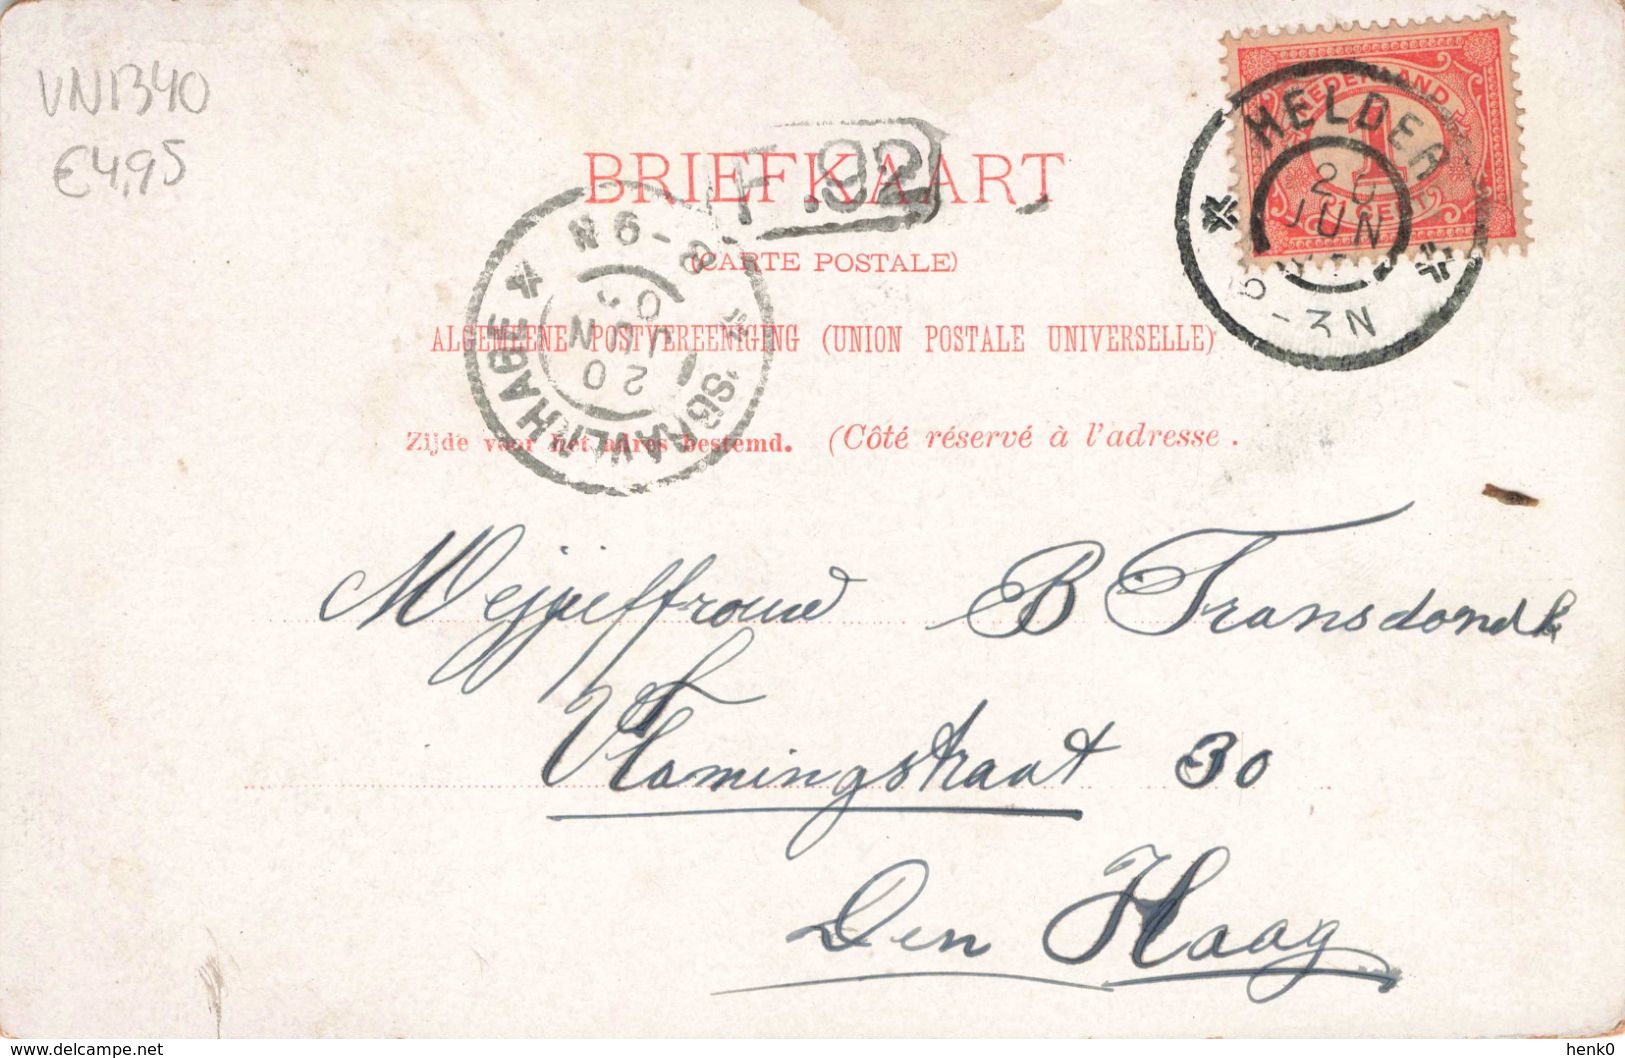 VN1340
€4,95
BRIEFKAART
F .92
(CARTE POSTALE)
ALGEMEENE POSTVEREENIGING (UNION POSTALE UNIVERSELLE)
Zijde voor het adres bestemd. (Côté réservé à l'adresse.
HELDER
20
JUN
-3N
NEDERLAND
1
1 CENT
'SGRAVENHAGE
20
JUN
N6-8
Mejjeffrouw B Transdondk
Vlamingstraat 30
Den Haag
© delcampe.net
henk0